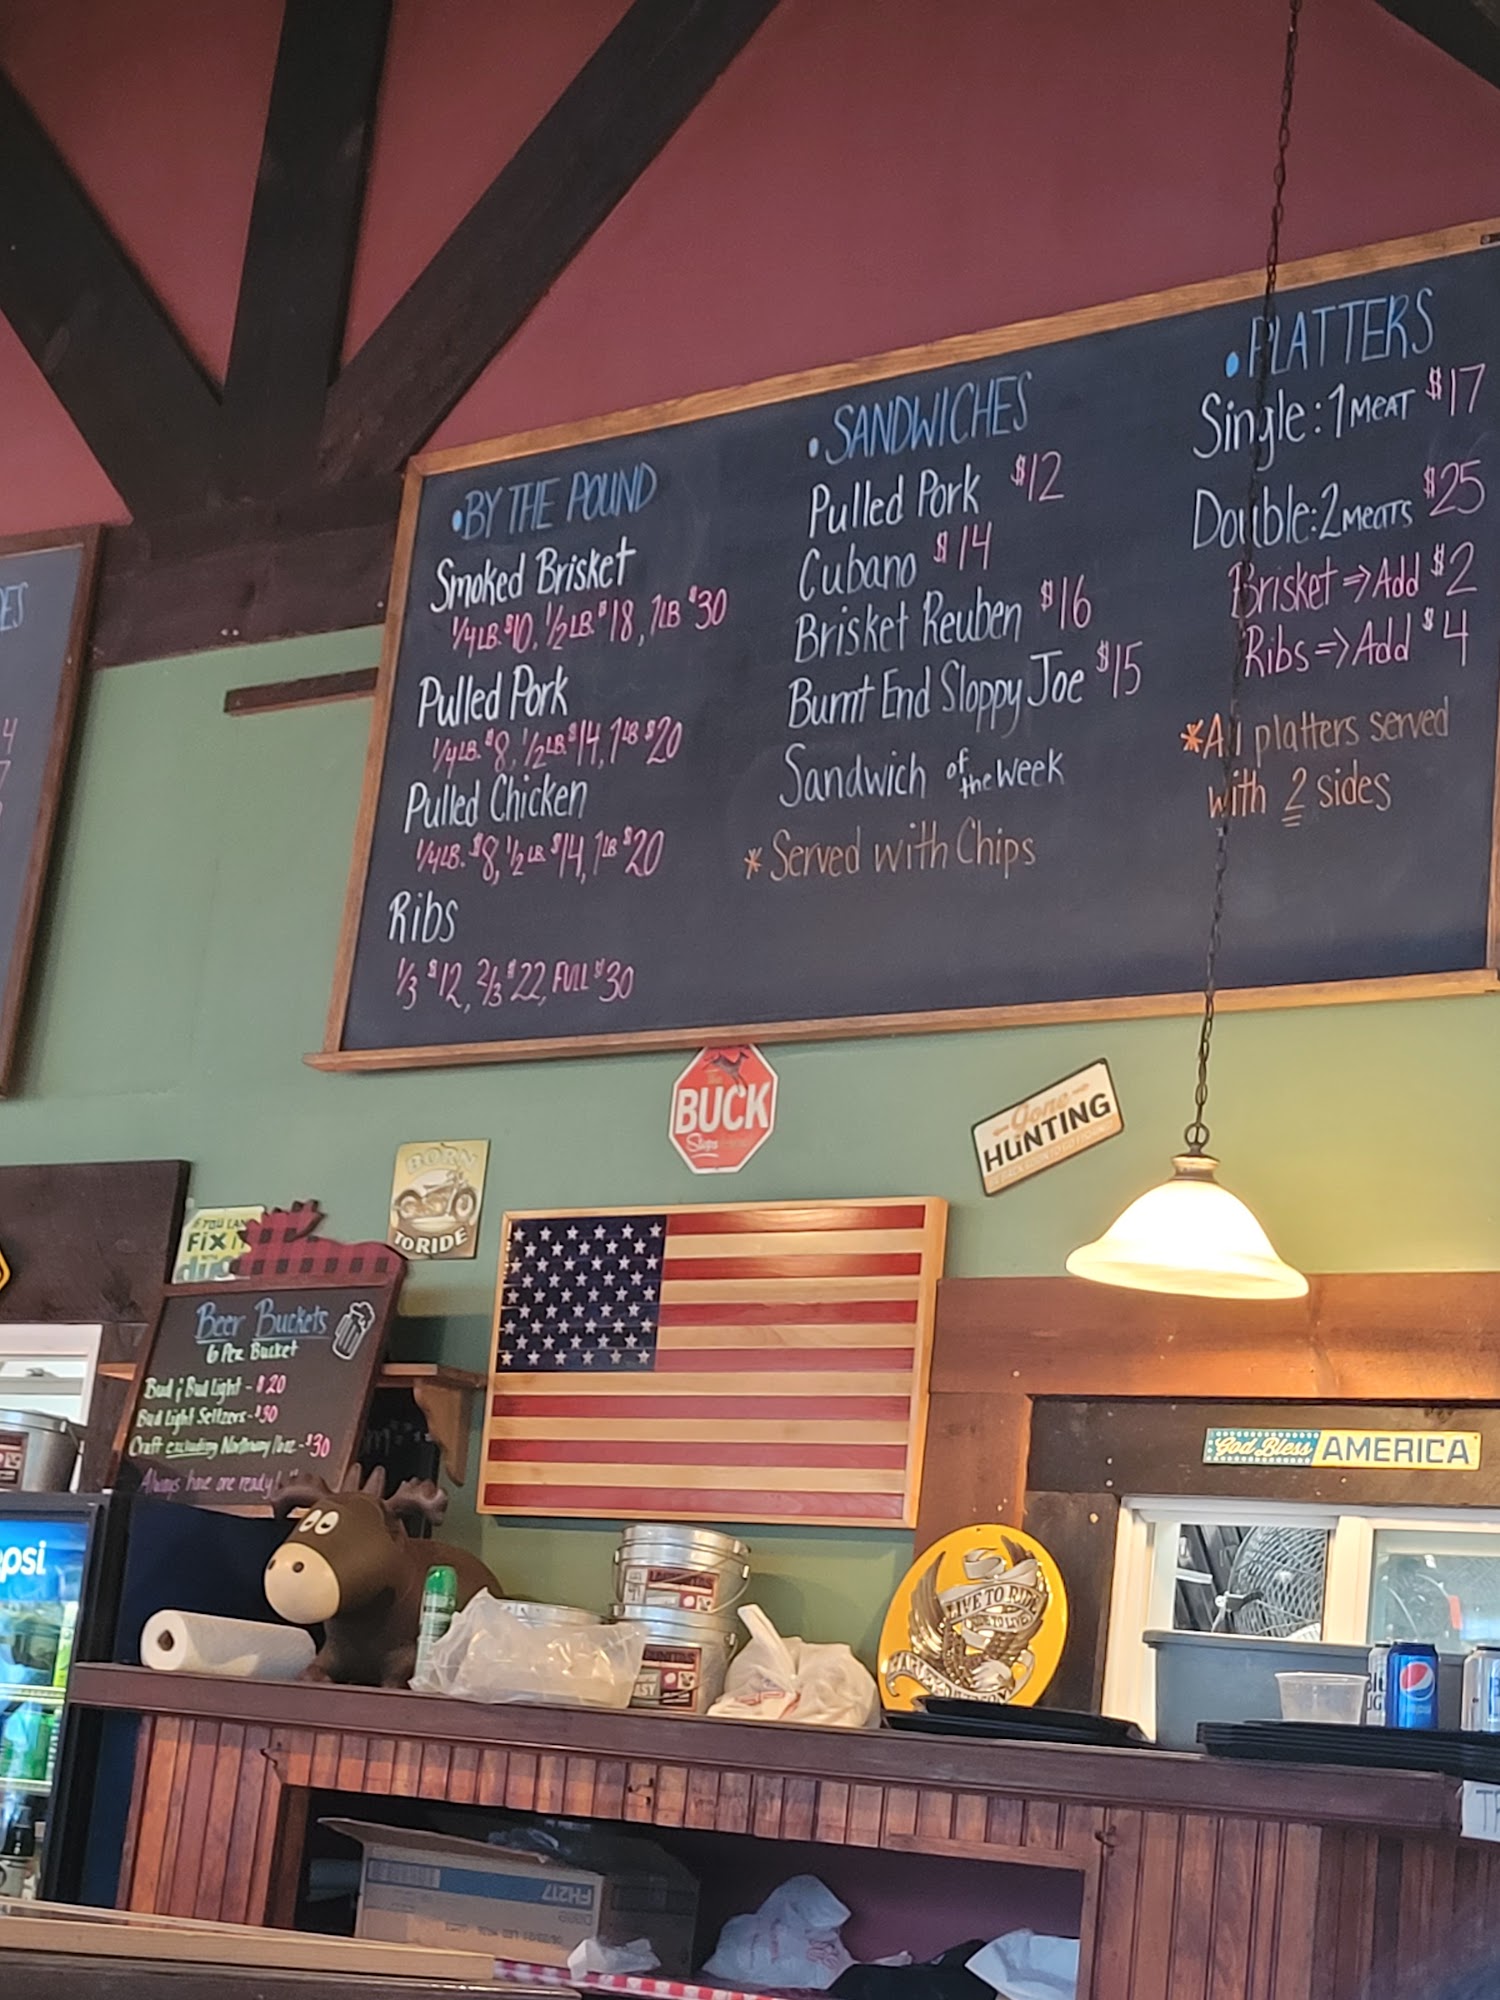 • BY THE POUND
Smoked Brisket
1/4 LB. $10, 1/2 LB. $18, 1LB $30
Pulled Pork
1/4 LB. $8, 1/2 LB. $14, 1LB $20
Pulled Chicken
1/4 LB. $8, 1/2 LB. $14, 1LB $20
Ribs
1/3 $12, 2/3 $22, FULL $30
• SANDWICHES
Pulled Pork $12
Cubano $14
Brisket Reuben $16
Burnt End Sloppy Joe $15
Sandwich of the Week
* Served with Chips
• PLATTERS
Single: 1 MEAT $17
Double: 2 MEATS $25
Brisket => Add $2
Ribs => Add $4
* All platters served
with 2 sides
The
BUCK
Stops
Gone
HUNTING
BORN
TO RIDE
IF YOU CAN
FIX IT
Beer Buckets
6 Per Bucket
Bud & Bud Light - $20
Bud Light Seltzers - $30
Craft excluding Northway - $30
Always have one ready!
God Bless AMERICA
LIVE TO RIDE
pepsi
FH217